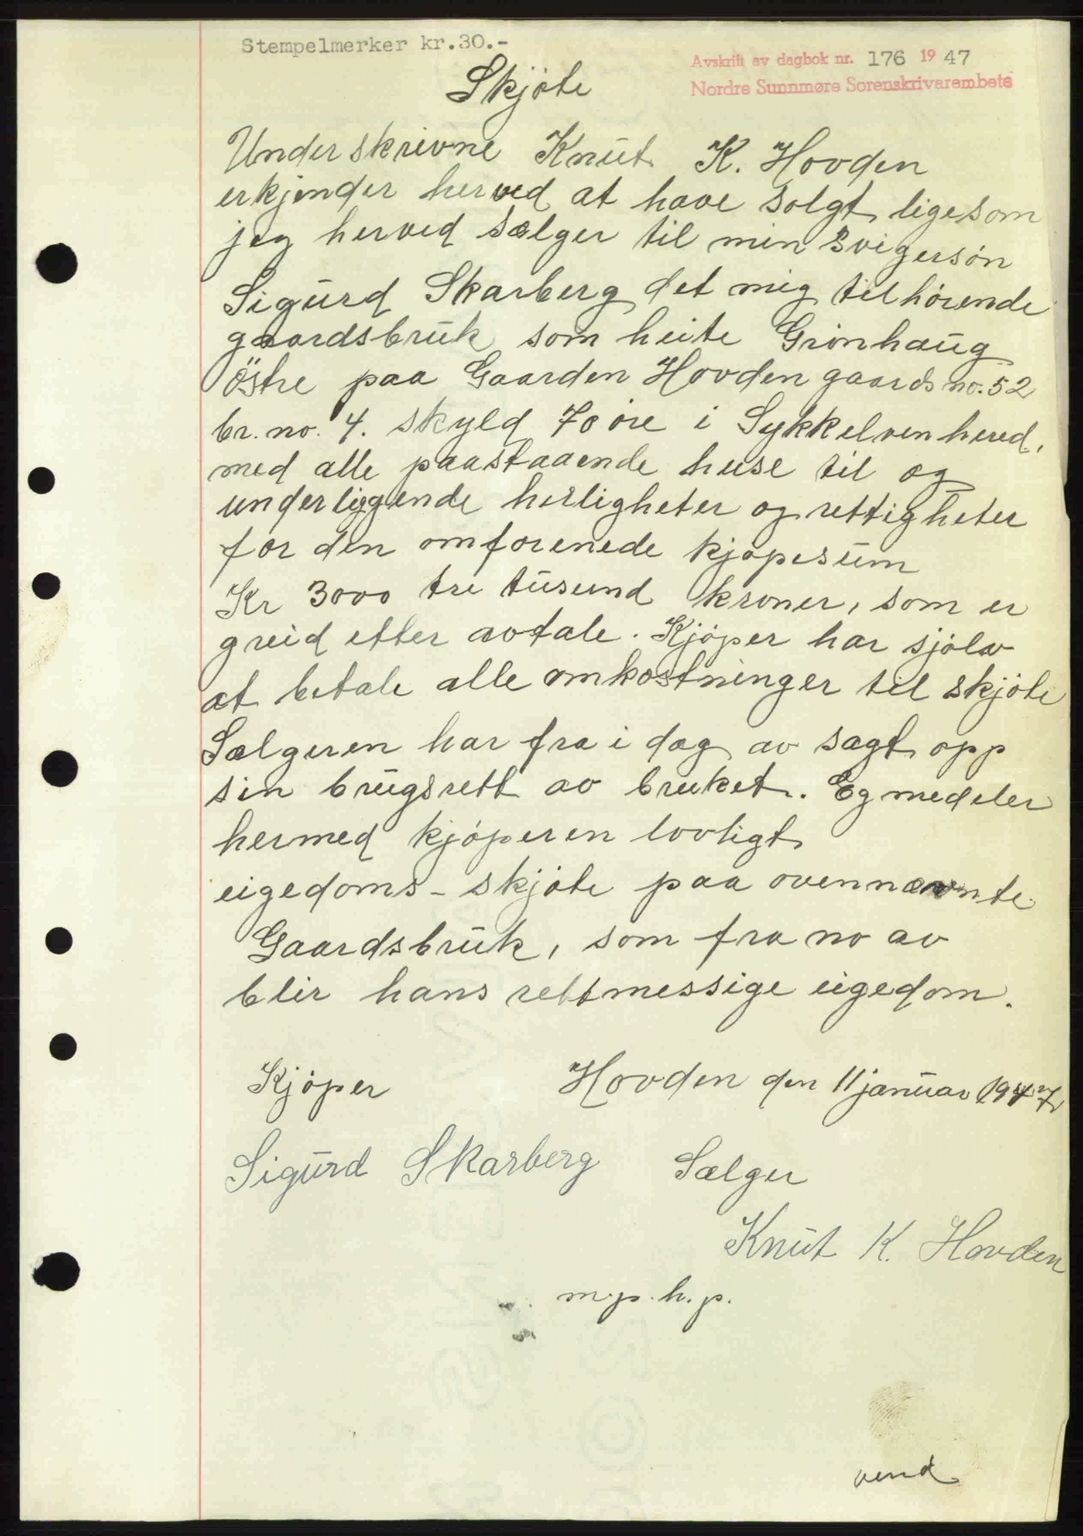 Stempelmerker kr.30.-
Avskrift av dagbok nr. 176 1947
Nordre Sunnmøre Sorenskrivarembete
Skjöte
Underskrivne Knut K. Hovden
erkjender herved at have solgt ligesom
jeg herved sælger til min Svigersön
Sigurd Skarberg det mig tilhörende
gaardsbruk som heite Grönhaug
Östre paa Gaarden Hovden gaards no. 52
br. no. 4. skyld 70 öre i Sykkelven hered,
med alle paastaaende huse til og
underliggende herligheter og rettigheter
for den omforenede kjöpesum
Kr 3000 tre tusend kroner, som er
greid etter avtale. Kjöper har sjölv
at betale alle omkostninger til skjöte
Sælgeren har fra i dag av sagt opp
sin brugsrett av bruket. Eg medeler
hermed kjöperen lovligt
eigedoms - skjöte paa ovennævnte
Gaardsbruk, som fra no av
blir hans rettmessige eigedom.
Kjöper Hovden den 11 januar 1947
Sigurd Skarberg Sælger
Knut K. Hovden
m.p.h.p.
vend